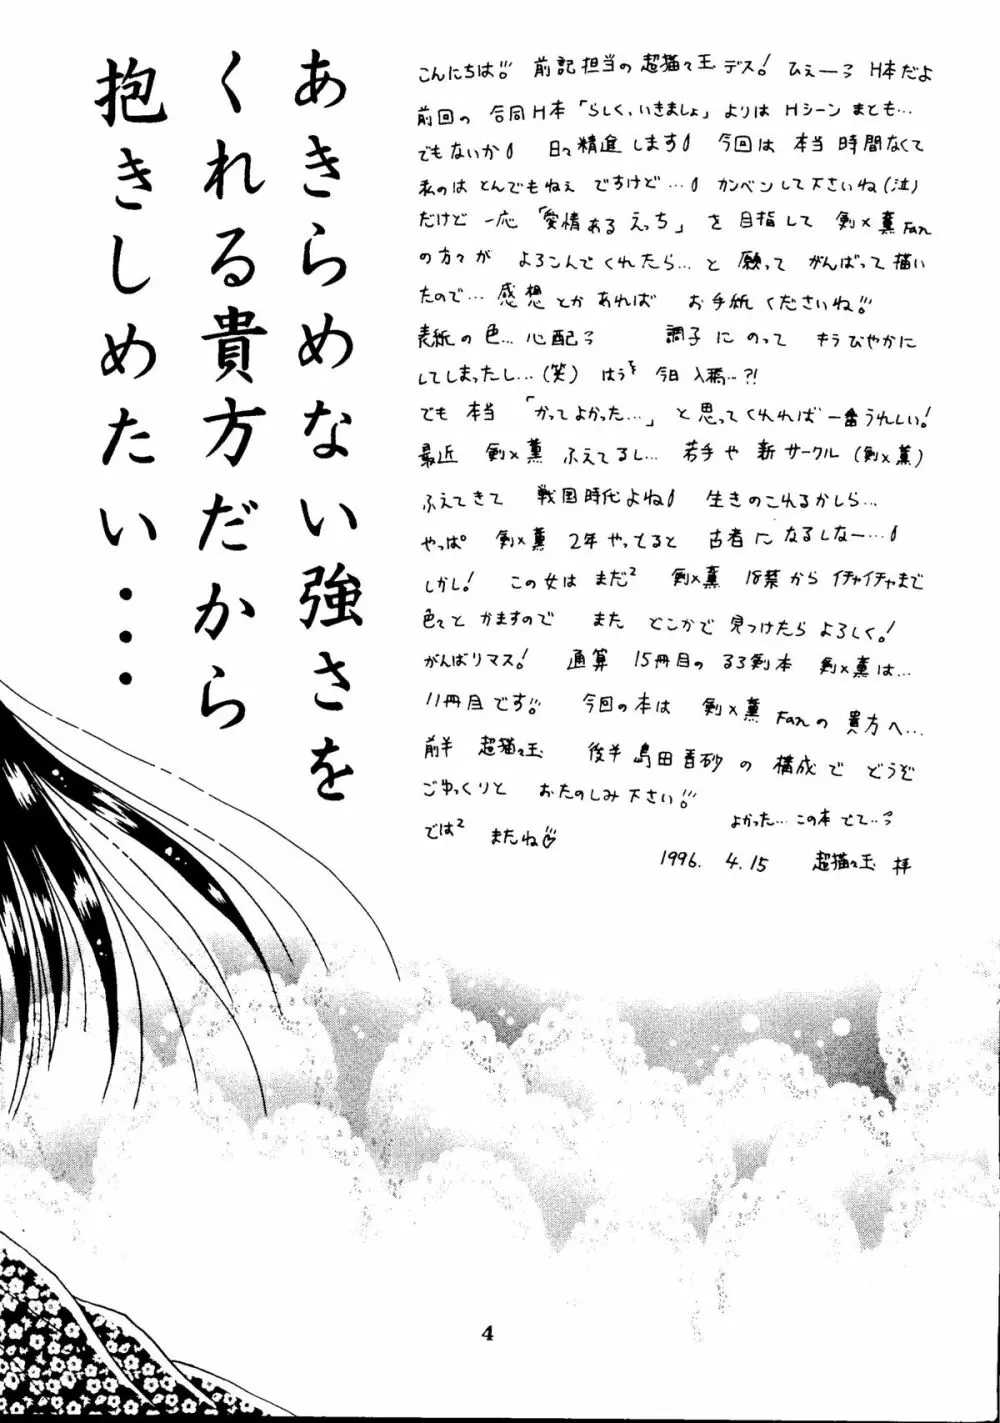 あきらめない強さを
くれる貴方だから
抱きしめたい・・・
こんにちは!! 前記担当の超猫々玉デス! ひぇーっ H本だよ
前回の 合同H本「らしく、いきましょ」よりは Hシーン まとも…
でもないか 日々精進します 今回は 本当 時間なくて
私のは とんでもねぇ ですけど… カンベンして下さいね(泣)
だけど 一応「愛情ある えっち」を目指して 剣×薫Fan
の方々が よろこんでくれたら…と 願って がんばって描い
たので… 感想とかあれば お手紙くださいね!!
表紙の色…心配っ 調子にのって きらびやかに
してしまったし…(笑) はうぅ 今日入稿…?!
でも 本当「かってよかった…」と思ってくれれば 一番うれしい!
最近 剣×薫 ふえてるし… 若手や 新サークル(剣×薫)
ふえてきて 戦国時代よね 生きのこれるかしら…
やっぱ 剣×薫 2年やってると 古者に なるしなー…
しかし! この女は まだ² 剣×薫 18禁から イチャイチャまで
色々とかますので また どこかで 見つけたら よろしく!
がんばりマス! 通算 15冊目の るろ剣本 剣×薫は…
11冊目です!! 今回の本は 剣×薫Fanの 貴方へ…
前半 超猫々玉 後半 島田吾砂の 構成で どうぞ
ごゆっくりと おたのしみ下さい!!
では² またね♡ よかった…この本 でて…っ
1996. 4.15 超猫々玉 拝
4